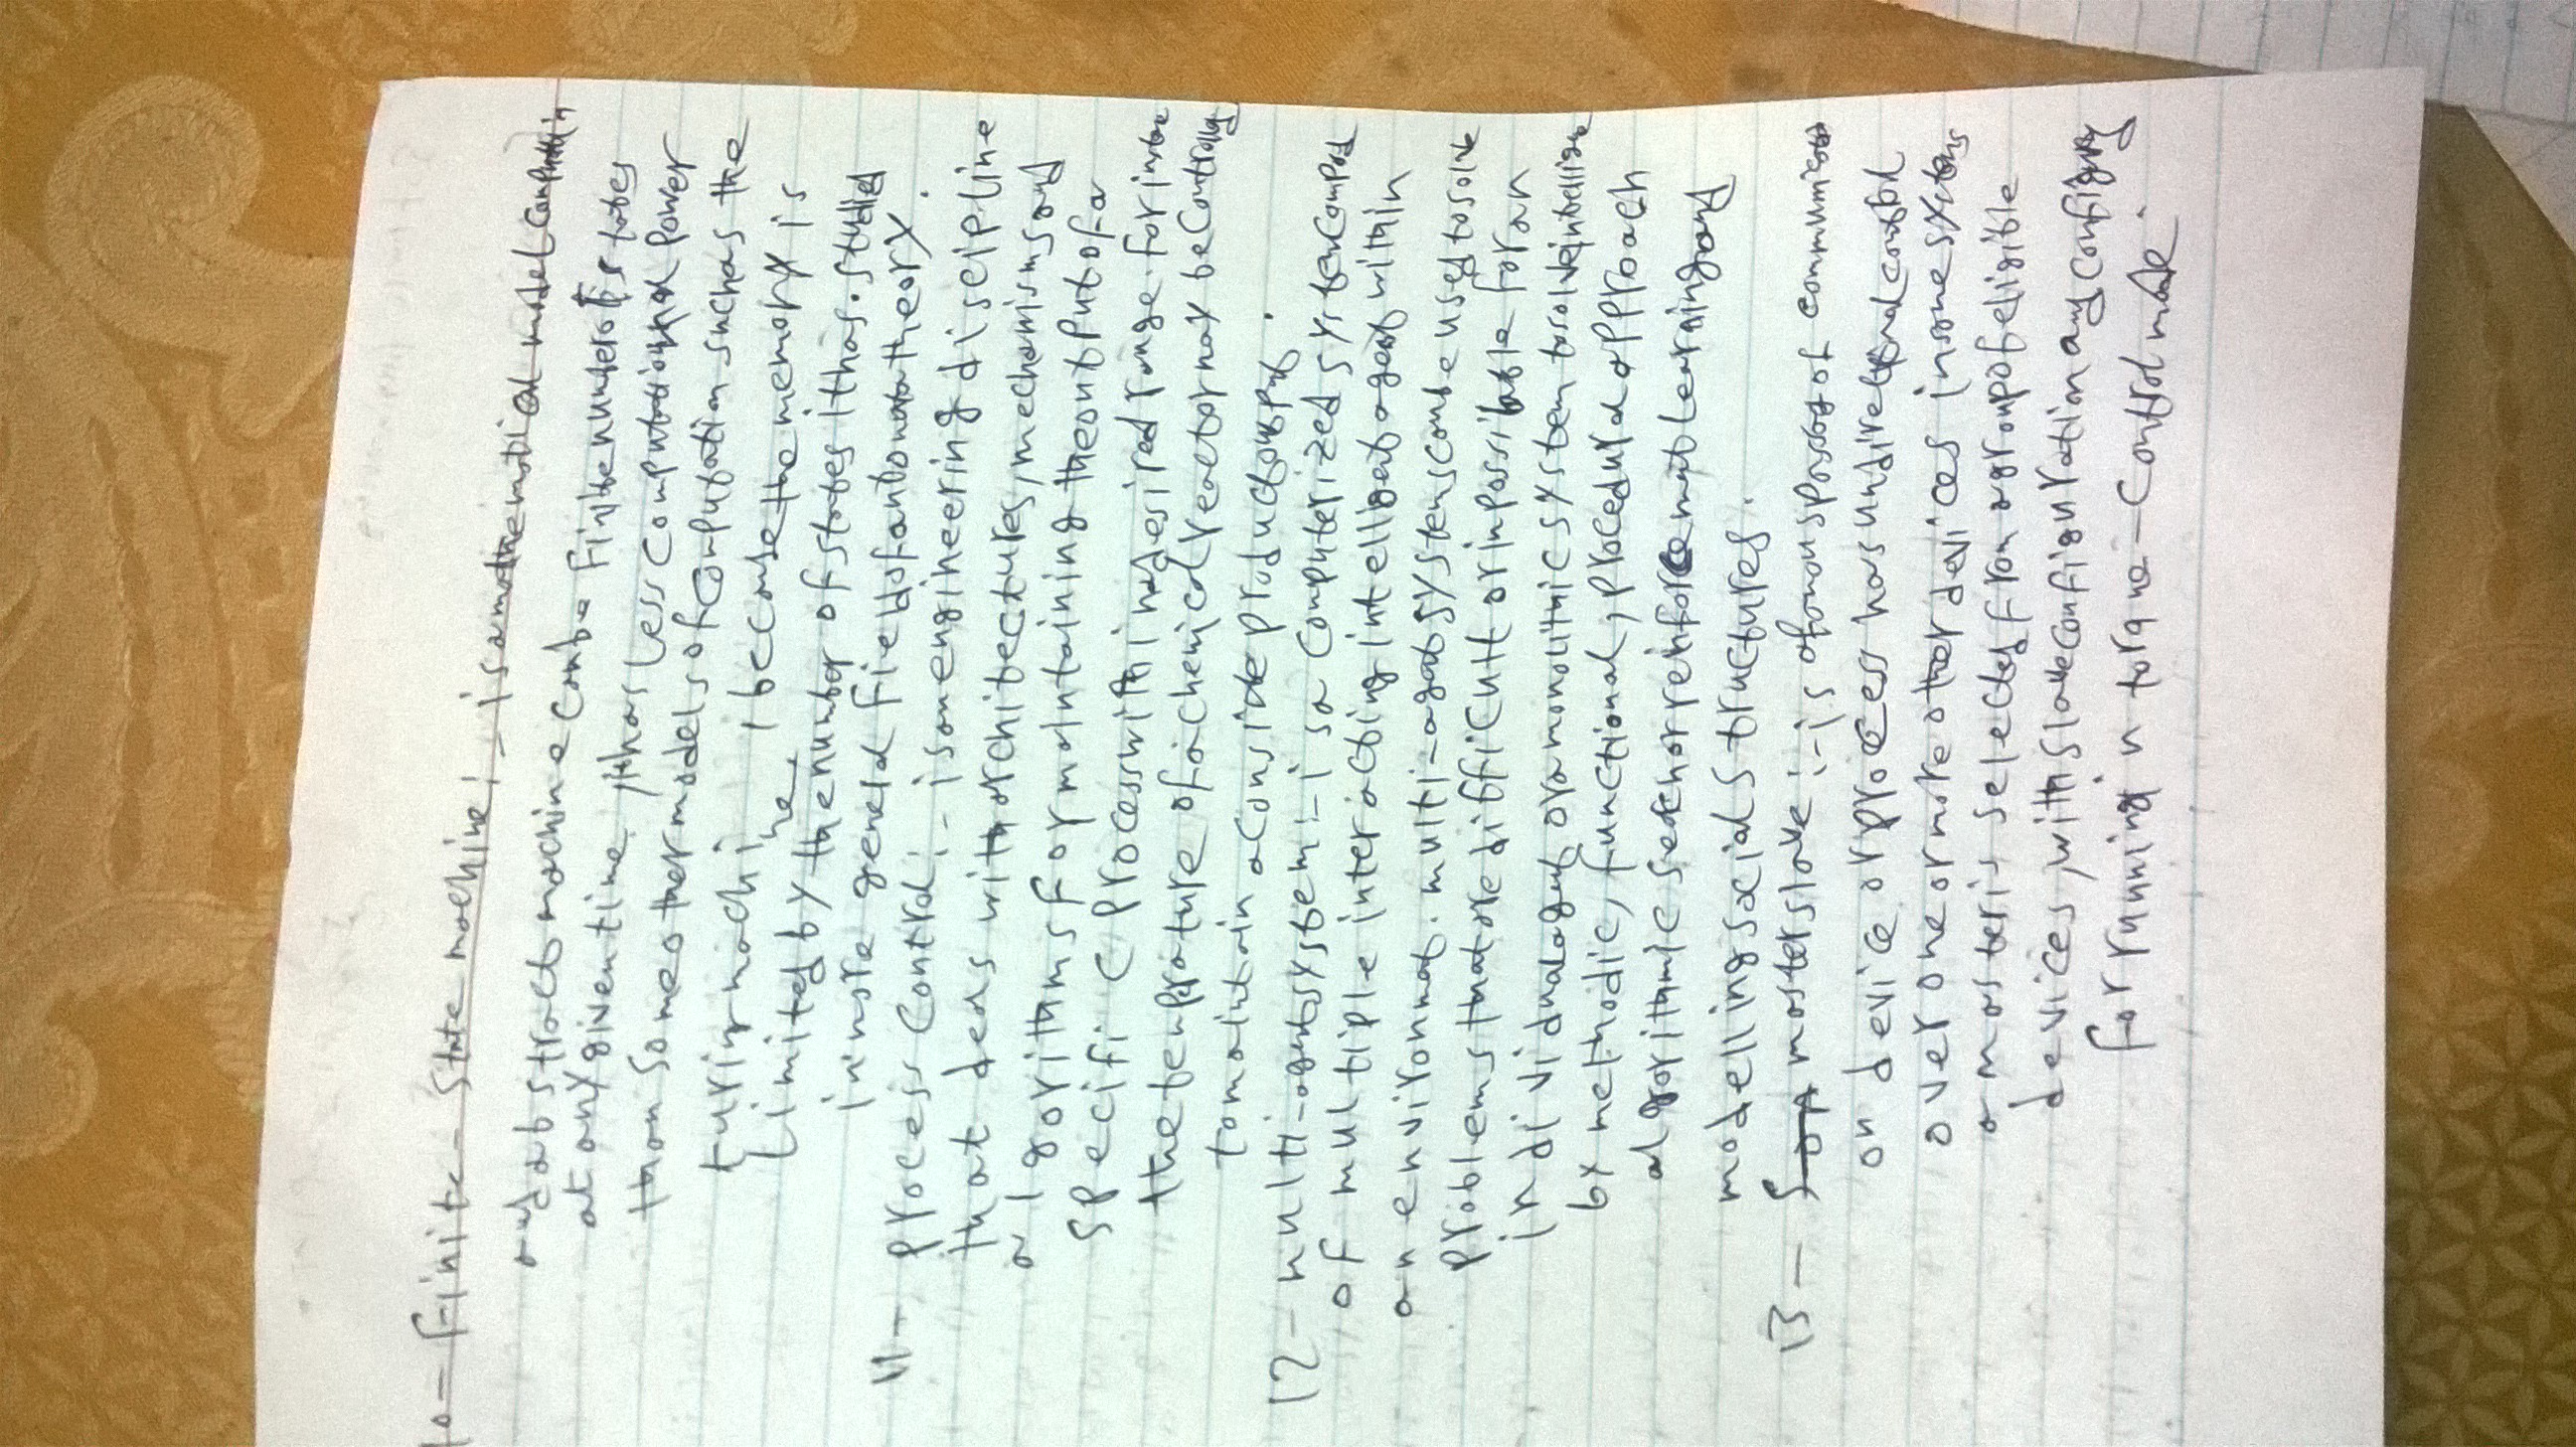 10- Finite - State machine :- is a mathematical model computin
and abstract machine can be Finite number of states
at any given time, it has less computational power
than some other models of computation such as the
turing machine, because the memory is
limited by the number of states it has. studied
in more general field of automata theory.
11- process control :- is an engineering discipline
that deals with architectures, mechanisms and
algorithms for maintaining the output of a
specific process within a desired range. for instance
the temprature of a chemical reactor may be controlled
to maintain a product output.
12- multi-agent system :- is a computerized system composed
of multiple interacting intelligent agent within
an environment. multi-agent systems can be used to solve
problems that are difficult or impossible for an
individual agent or a monolithic system to solve intelligence
by methodic, functional, procedural approach
algorithmic search or reinforcement learning and
modelling social structures.
13- master slave :- is of communication
on device or process has undirectional control
over one or more other devices in some systems
a master is selected from a group of eligible
devices, with slave configuration and
for running in torque - control mode.